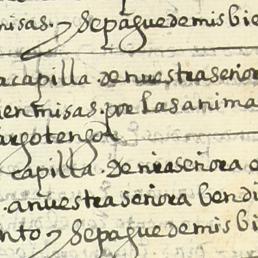 misas. y sepague demis bie
a capilla. de nuestra señor
ien misas. por las anima
argo tengo
capilla. de nra señora e
. a nuestra señora bendi
nto y sepague demis bi